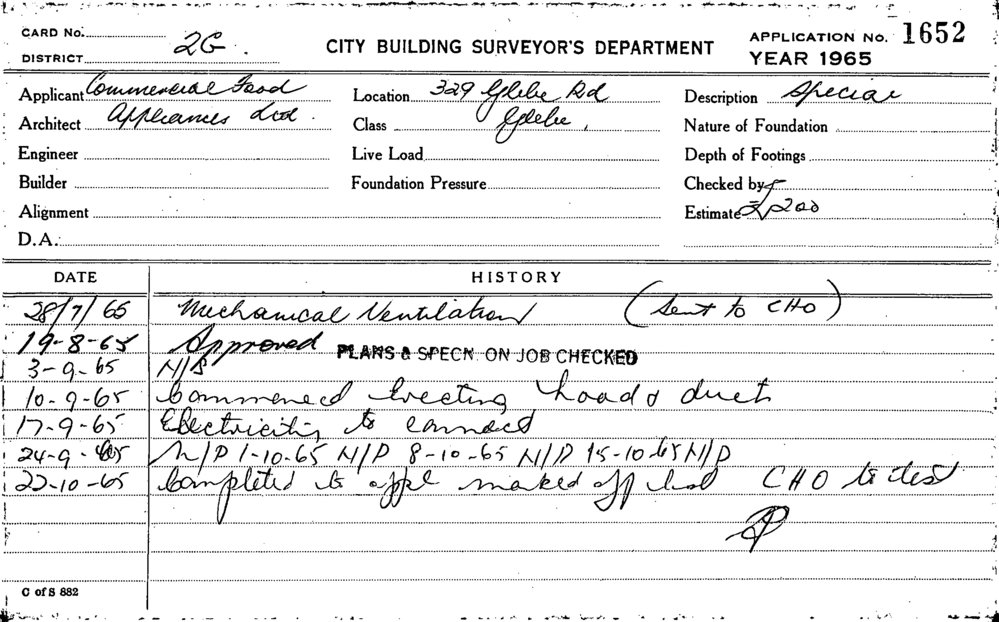 CARD No.
DISTRICT 2G.
CITY BUILDING SURVEYOR'S DEPARTMENT
APPLICATION No. 1652
YEAR 1965
Applicant Commercial Food
Location 329 Glebe Rd
Description Special
Architect Appliances Ltd.
Class Glebe,
Nature of Foundation
Engineer
Live Load
Depth of Footings
Builder
Foundation Pressure
Checked by
Alignment
Estimate £1200
D.A.
DATE HISTORY
28/7/65 Mechanical Ventilation (Sent to CHO)
19-8-65 Approved PLANS & SPECN. ON JOB CHECKED
3-9-65 N/S
10-9-65 Commenced erecting hood & duct
17-9-65 Electricity to connect
24-9-65 N/P 1-10-65 N/P 8-10-65 N/P 15-10-65 N/P
22-10-65 Completed to appl marked off list CHO to test
C of S 882